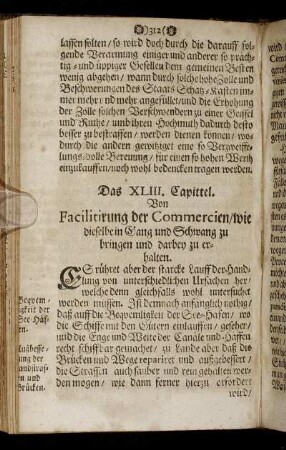 )312(
lassen solten / so wird doch durch die darauff fol-
gende Verarmung einiger und anderer so präch-
tig- und üppiger Gesellen dem gemeinen Besten
wenig abgehen / wann durch solche hohe Zolle und
Beschwerungen des Staats Schatz-Kasten im-
mer mehr und mehr angefüllet / und die Erhöhung
der Zölle solchen Verschwendern zu einer Geissel
und Ruthe / und ihren Hochmuth dadurch desto
besser zu bestraffen / werden dienen können / wo-
durch die andern gewitziget eine so Verzweiffe-
lungs-volle Bereuung / für einen so hohen Werth
einzukauffen / noch wohl bedencken tragen werden.
Das XLIII. Capittel.
Von
Facilitirung der Commercien / wie
dieselbe in Gang und Schwang zu
bringen und darbey zu er-
halten.
ES rühret aber der starcke Lauff der Hand-
lung von unterschiedlichen Ursachen her /
welche denn gleichfalls wohl untersuchet
werden müssen. Ist demnach anfänglich nöthig /
daß auff die Bequemligkeit der See-Hafen / wo
die Schiffe mit den Gütern einlauffen / gesehen /
und die Enge und Weite der Canäle und Haffen
recht schiffbar gemachet / zu Lande aber daß die
Brücken und Wege repariret und außgebessert /
die Strassen auch sauber und rein gehalten wer-
den mögen / wie dann ferner hierzu erfordert
wird /
Bequem-
ligkeit der
See-Häf-
fen.
Außbesse-
rung der
Landstras-
sen und
Brücken.